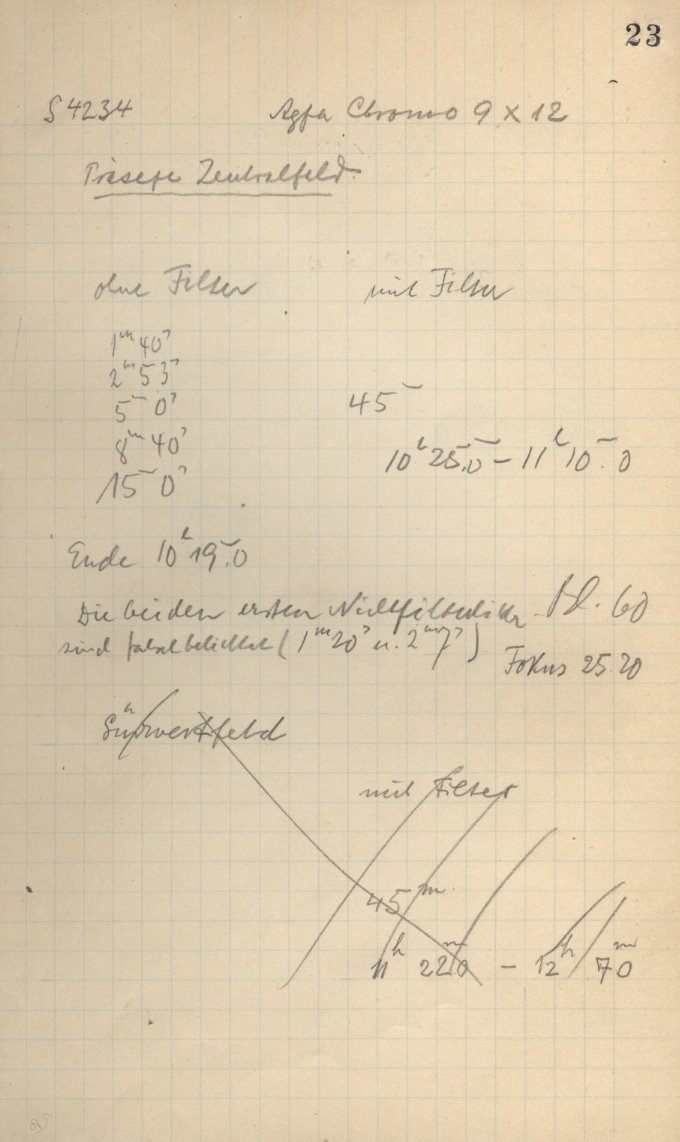 23
S 4234 Agfa Chromo 9 x 12
Präsepe Zentralfeld.
ohne Filter mit Filter
1ᵐ 40ˢ
2ᵐ 53ˢ
5ᵐ 0ˢ 45ᵐ
8ᵐ 40ˢ
10ʰ 25ᵐ.0 – 11ʰ 10ᵐ.0
15ᵐ 0ˢ
Ende 10ʰ 19ᵐ.0
Die beiden ersten Bl. 60
sind falsch belichtet (1ᵐ 20ˢ u. 2ᵐ 7ˢ)
Fokus 25.20
Südwestfeld
mit Filter
45ᵐ
11ʰ 22ᵐ0 – 12ʰ 7ᵐ0